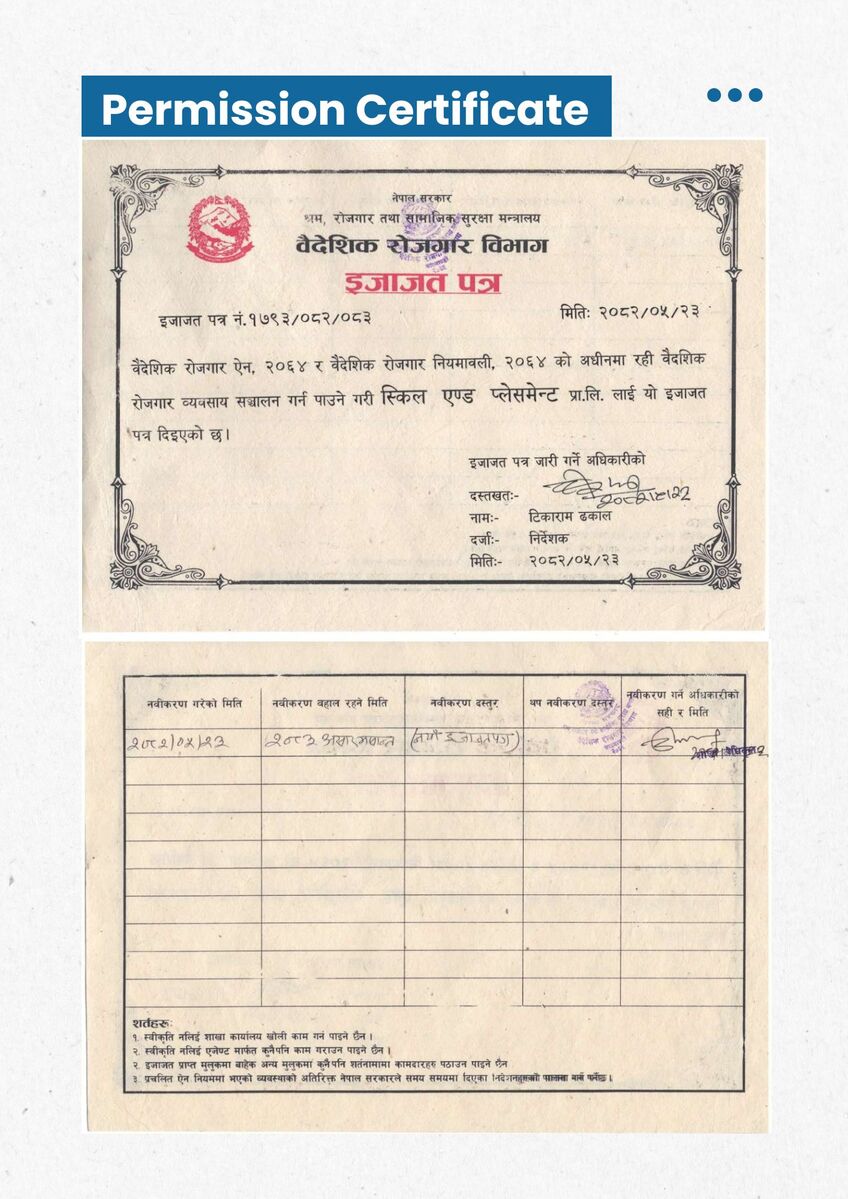 Permission Certificate
नेपाल सरकार
श्रम, रोजगार तथा सामाजिक सुरक्षा मन्त्रालय
वैदेशिक रोजगार विभाग
इजाजत पत्र
इजाजत पत्र नं.१७९३/०८२/०८३
मितिः २०८२/०५/२३
वैदेशिक रोजगार ऐन, २०६४ र वैदेशिक रोजगार नियमावली, २०६४ को अधीनमा रही वैदशिक
रोजगार व्यवसाय सञ्चालन गर्न पाउने गरी स्किल एण्ड प्लेसमेन्ट प्रा.लि. लाई यो इजाजत
पत्र दिइएको छ।
इजाजत पत्र जारी गर्ने अधिकारीको
दस्तखतः-
नामः- टिकाराम ढकाल
दर्जाः- निर्देशक
मितिः- २०८२/०५/२३
नवीकरण गरेको मिति
नवीकरण बहाल रहने मिति
नवीकरण दस्तुर
थप नवीकरण दस्तुर
नवीकरण गर्ने अधिकारीको
सही र मिति
२०८२/०५/२३
२०८३ असार मसान्त
(नयाँ इजाजतपत्र)
शर्तहरुः
१. स्वीकृति नलिई शाखा कार्यालय खोली काम गर्न पाइने छैन।
२. स्वीकृति नलिई एजेण्ट मार्फत कुनैपनि काम गराउन पाइने छैन।
२. इजाजत प्राप्त मुलुकमा बाहेक अन्य मुलुकमा कुनैपनि शर्तनामामा कामदारहरु पठाउन पाइने छैन
३. प्रचलित ऐन नियममा भएको व्यवस्थाको अतिरिक्त नेपाल सरकारले समय समयमा दिएका निर्देशनहरुको पालना गर्नु पर्नेछ।